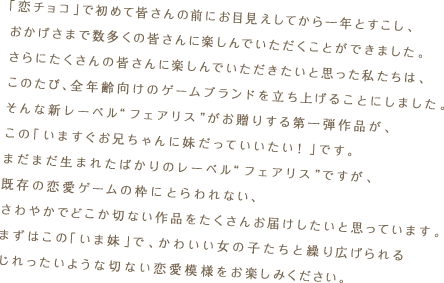 「恋チョコ」で初めて皆さんの前にお目見えしてから一年とすこし、
おかげさまで数多くの皆さんに楽しんでいただくことができました。
さらにたくさんの皆さんに楽しんでいただきたいと思った私たちは、
このたび、全年齢向けのゲームブランドを立ち上げることにしました。
そんな新レーベル“フェアリス”がお贈りする第一弾作品が、
この「いますぐお兄ちゃんに妹だっていいたい！」です。
まだまだ生まれたばかりのレーベル“フェアリス”ですが、
既存の恋愛ゲームの枠にとらわれない、
さわやかでどこか切ない作品をたくさんお届けしたいと思っています。
まずはこの「いま妹」で、かわいい女の子たちと繰り広げられる
じれったいような切ない恋愛模様をお楽しみください。